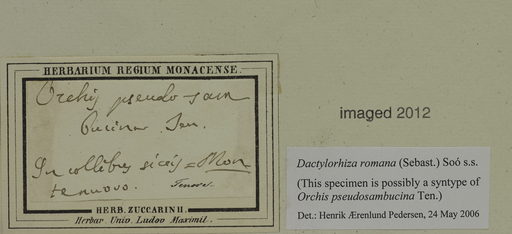 HERBARIUM REGIUM MONACENSE.
Orchis pseudo-sam
bucina Ten.
In collibus siccis = Mon
tenuovo. Tenore.
HERB. ZUCCARINII.
Herbar. Univ. Ludov. Maximil.
imaged 2012
Dactylorhiza romana (Sebast.) Soó s.s.
(This specimen is possibly a syntype of
Orchis pseudosambucina Ten.)
Det.: Henrik Ærenlund Pedersen, 24 May 2006